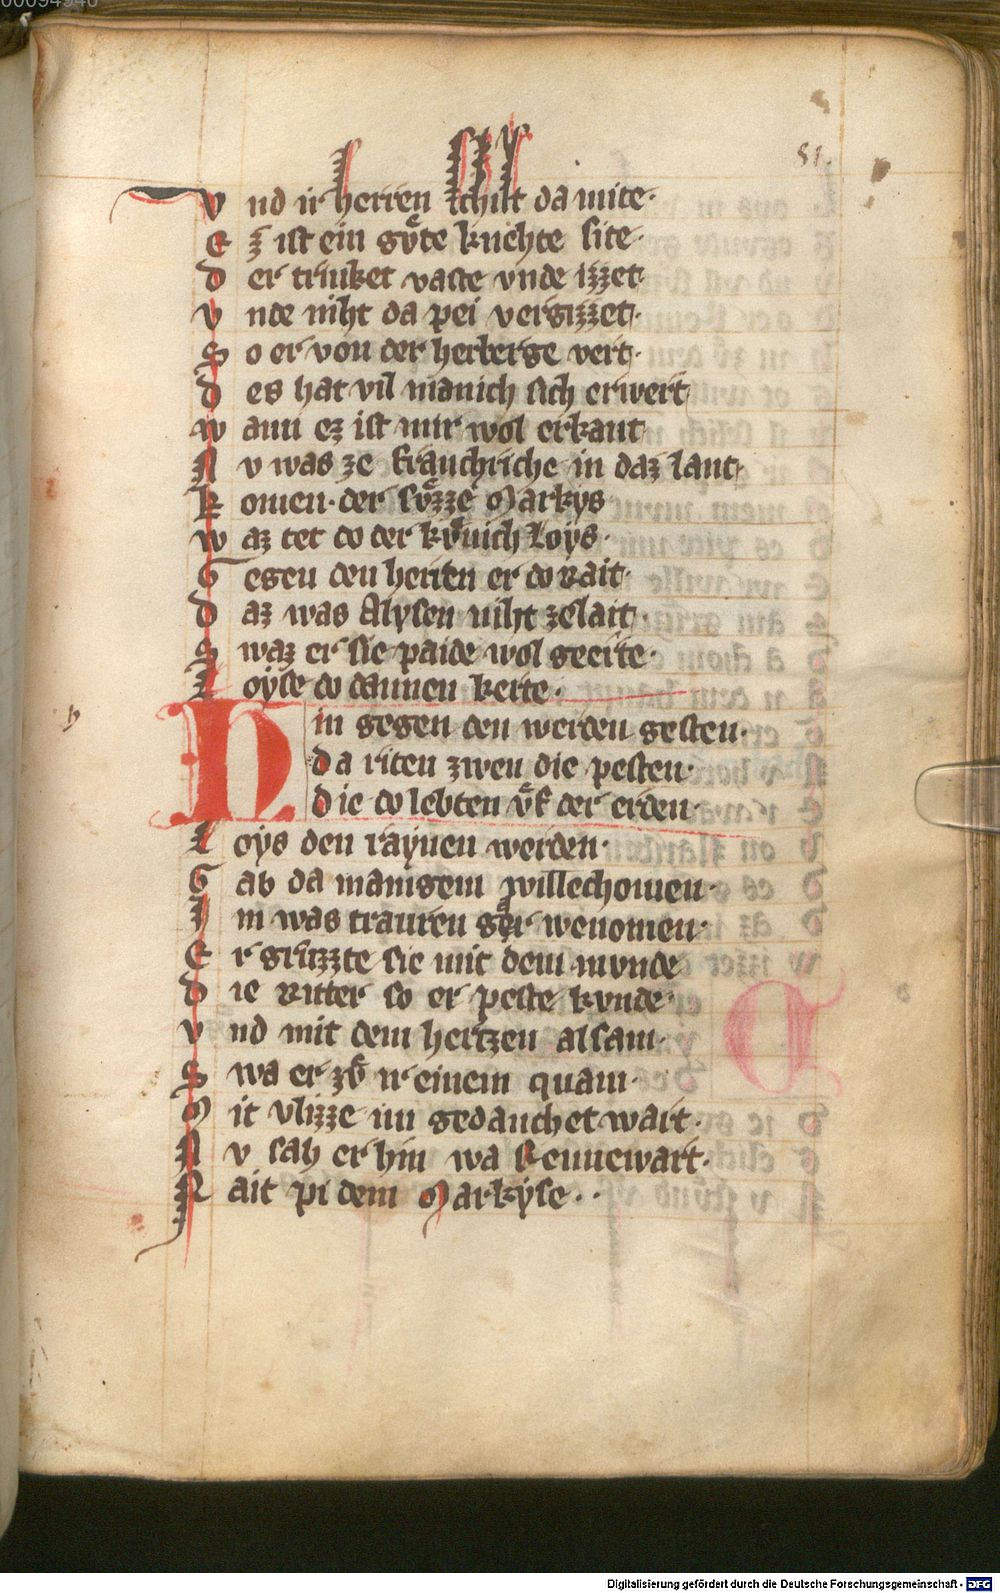 00094946
51.
Vnd ir herren schilt da mite·
Ez ist ein gv̊te knehte site·
Der trinket vaste vnde izzet·
Vnde niht da pei vergizzet·
So er von der herberge vert·
Des hat vil manich sich erwert
Wann ez ist mir wol erkant
Nv was ze franchriche in daz lant·
Komen· der sv̊zze Markys
Waz tet do der kv̊nich Loys·
Gegen den herren er do rait·
Daz was Alysen niht ze lait·
Swaz er sie paide wol geerte·
Loyse do dannen kerte·
h
Hin gegen den werden gesten·
Da riten zwen die pesten·
Die do lebten v̊f der erden·
Loys den raynen werden·
Gab da manigem willechomen·
Im was trauren gar wenomen·
Er grůzzte sie mit dem mvnde
Die Ritter so er peste kvnde·
Vnd mit dem hertzen alsam·
Swa er zv̊ ir einem quam·
Mit vlizze im gedanchet wart·
Nv sah er hin wa Rennewart·
Rait pi dem Markyse··
Digitalisierung gefördert durch die Deutsche Forschungsgemeinschaft - DFG